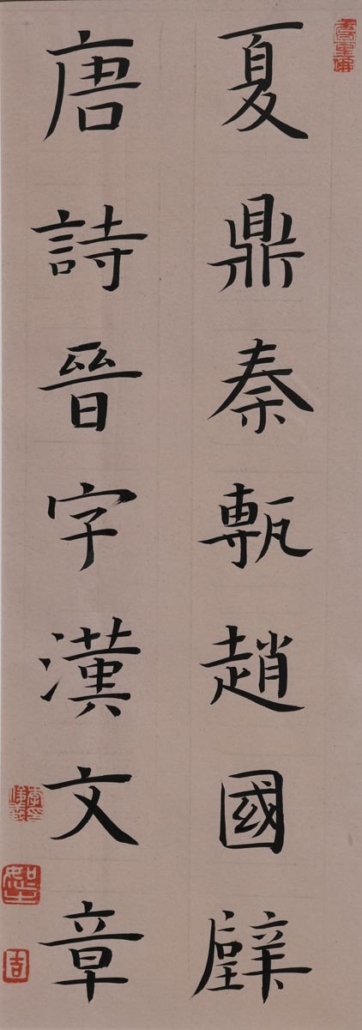 夏鼎秦甎趙國璧
唐詩晉字漢文章
吉